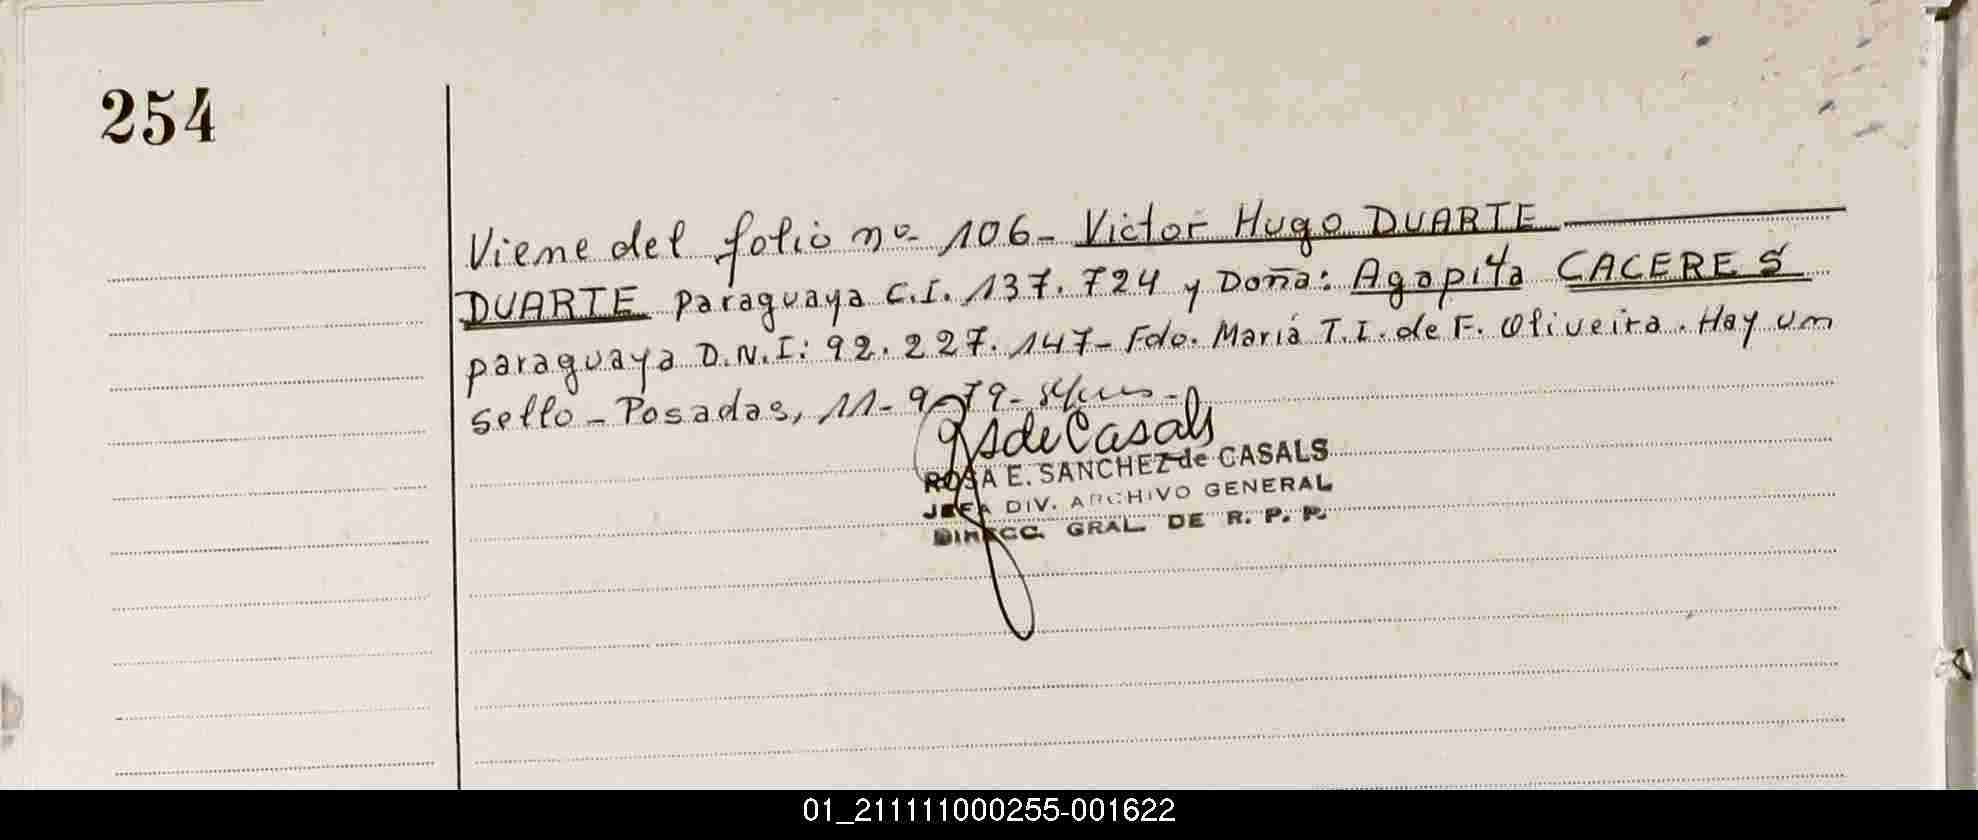 254
Viene del folio nº 106- Victor Hugo DUARTE
DUARTE paraguaya C.I. 137.724 y Doña: Agapita CACERES
paraguaya D.N.I: 92.227.147- Fdo. Maria T.I. de F. Oliveira. Hay un
sello - Posadas, 11-9-79-
de Casals
ROSA E. SANCHEZ de CASALS
JEFA DIV. ARCHIVO GENERAL
DIRECC. GRAL. DE R. P. P.
01_211111000255-001622